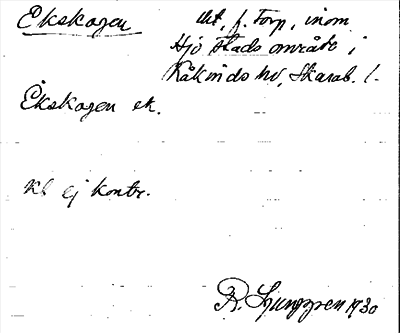 Ekskogen
Urt, f. Torp, inom
Hjo stads område i
Kåkinds hd, Skarab. l.
Ekskogen ek.
Kb ej kontr.
R. Ljunggren 1930